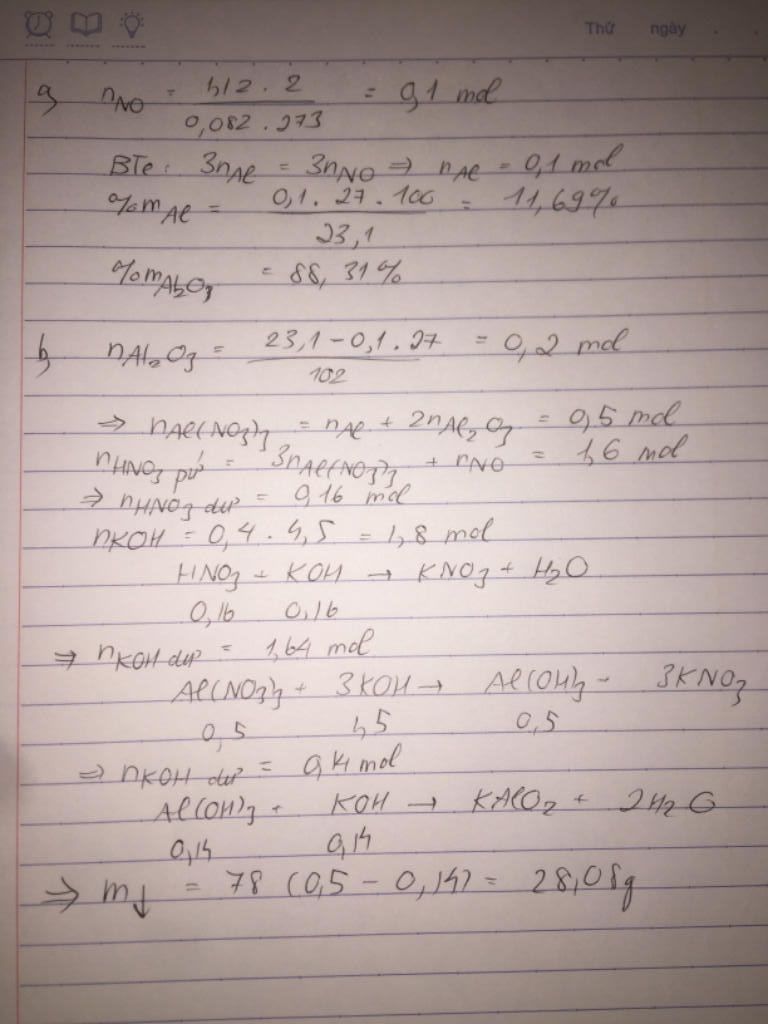 Thứ ngày . .
a, nNO = 1,12 . 2 / 0,082 . 273 = 0,1 mol
BTe: 3nAl = 3nNO ⇒ nAl = 0,1 mol
%mAl = 0,1 . 27 . 100 / 23,1 = 11,69%
%mAl2O3 = 88,31%
b, nAl2O3 = 23,1 - 0,1 . 27 / 102 = 0,2 mol
⇒ nAl(NO3)3 = nAl + 2nAl2O3 = 0,5 mol
nHNO3 pứ = 3nAl(NO3)3 + nNO = 1,6 mol
⇒ nHNO3 dư = 0,16 mol
nKOH = 0,4 . 4,5 = 1,8 mol
HNO3 + KOH → KNO3 + H2O
0,16 0,16
⇒ nKOH dư = 1,64 mol
Al(NO3)3 + 3KOH → Al(OH)3 - 3KNO3
0,5 1,5 0,5
⇒ nKOH dư = 0,14 mol
Al(OH)3 + KOH → KAlO2 + 2H2O
0,14 0,14
⇒ m↓ = 78 (0,5 - 0,14) = 28,08g